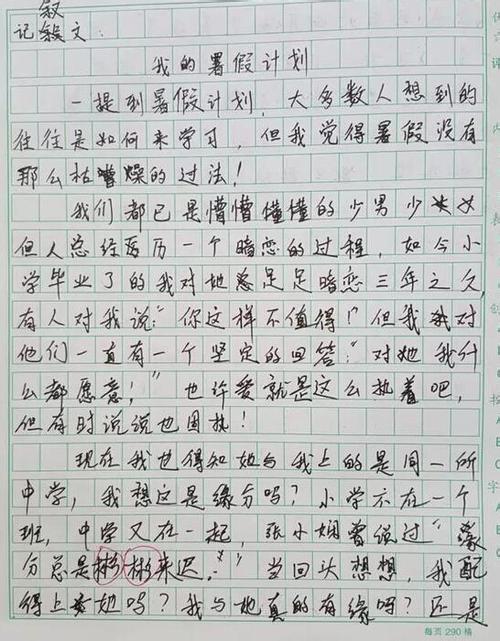 叙
记叙文:
我的暑假计划
一提到暑假计划,大多数人想到的
往往是如何来学习,但我觉得暑假没有
那么枯燥的过法!
我们都已是懵懵懂懂的少男少女
但人总经历一个暗恋的过程,如今小
学毕业了的我对她足足暗恋三年之久,
有人对我说:“你这样不值得!”但我对
他们一直有一个坚定的回答:“对她我什
么都愿意!”也许爱就是这么执着吧,
但有时说说也固执!
现在我也得知她与我上的是同一所
中学,我想这是缘分吗?小学不在一个
班,中学又在一起,张小娴曾说过“缘
分总是彬彬来迟。”当回头想想,我配
得上她吗?我与她真的有缘吗?还是
每页290格